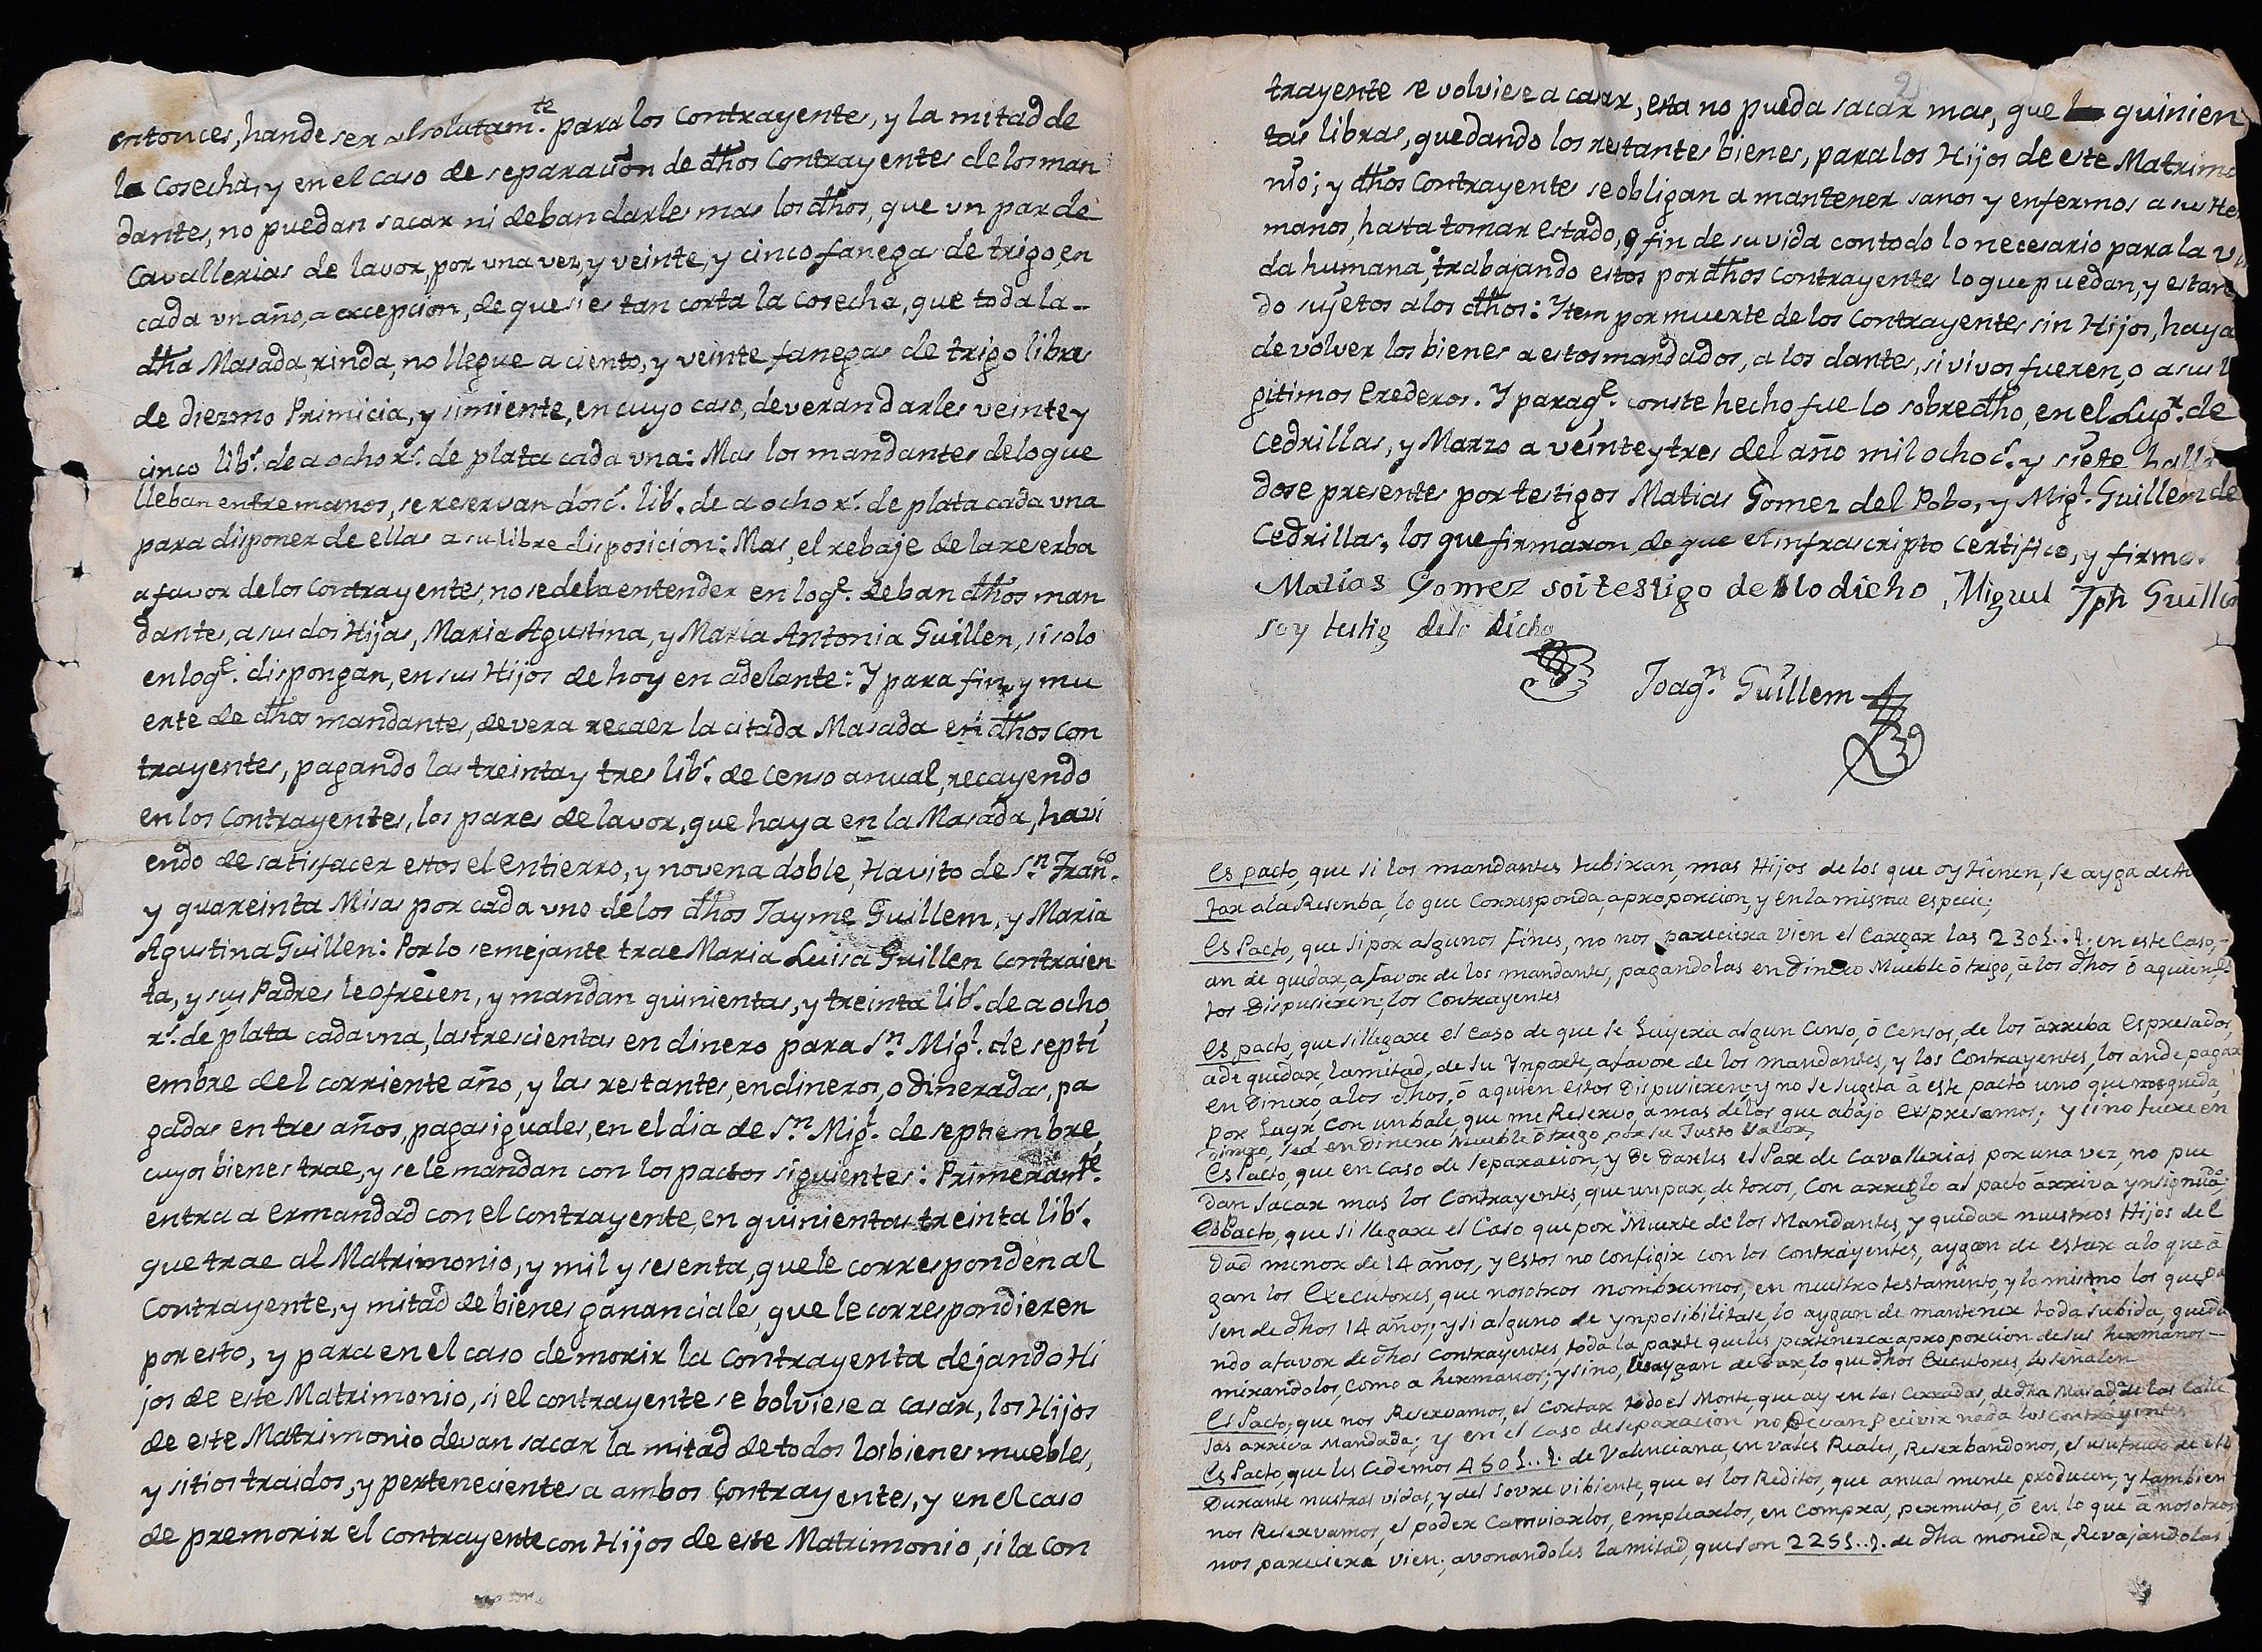 entonces, han de ser absolutam.te para los Contrayentes, y la mitad de
la Cosecha, y en el caso de separación de dhos Contrayentes de los man
dantes, no puedan sacar ni deban darles mas los dhos, que un par de
Cavallerias de lavor, por una vez, y veinte, y cinco fanegas de trigo, en
cada un año, a excepcion, de que si es tan corta la Cosecha, que toda la -
dha Masada, rinda, no llegue a ciento, y veinte fanegas de trigo libres
de diezmo Primicia, y simiente, en cuyo caso, deveran darles veinte y
cinco lib.s de a ocho r.s de plata cada una: Mas los mandantes de lo que
lleban entre manos, se reservan dosc.s lib.s de a ocho r.s de plata cada una
para disponer de ellas a su libre disposicion: Mas, el rebaje de la reserba
a favor de los Contrayentes, no se deba entender en loq.e deban dhos man
dantes, a sus dos Hijas, Maria Agustina, y Maria Antonia Guillen, si solo
en loq.e dispongan, en sus Hijos de hoy en adelante: Y para fin, y mu
erte de dhos mandantes, devera recaer la citada Masada en dhos con
trayentes, pagando las treinta y tres lib.s de Censo anual, recayendo
en los Contrayentes, los pares de lavor, que haya en la Masada, havi
endo de satisfacer estos el entierro, y novena doble, Havito de S.n Fran.co
y quareinta Misas por cada uno de los dhos Jayme Guillem, y Maria
Agustina Guillen: Por lo semejante trae Maria Luisa Guillen contraien
ta, y sus Padres le ofrecen, y mandan quinientas, y treinta lib.s de a ocho
r.s de plata cada una, las trescientas en dinero para S.n Mig.l de septi
embre del corriente año, y las restantes, en dineros, o dineradas, pa
gadas en tres años, pagas iguales, en el dia de S.n Mig.l de septiembre,
cuyos bienes trae, y se le mandan con los pactos siguientes: Primeram.te
entra a ermandad con el contrayente, en quinientas treinta lib.s
que trae al Matrimonio, y mil y sesenta, que le corresponden al
Contrayente, y mitad de bienes gananciales, que le correspondieren
por esto, y para en el caso de morir la Contrayenta dejando Hi
jos de este Matrimonio, si el contrayente se bolviese a casar, los Hijos
de este Matrimonio devan sacar la mitad de todos los bienes muebles,
y sitios traidos, y pertenecientes a ambos Contrayentes, y en el caso
de premorir el contrayente con Hijos de este Matrimonio, si la con
trayente se volviese a casar, esta no pueda sacar mas, que quinien
tas libras, quedando los restantes bienes, para los Hijos de este Matrimo
nio; y dhos Contrayentes se obligan a mantener sanos y enfermos a sus He
manos, hasta tomar estado, o fin de su vida con todo lo necesario para la vi
da humana, trabajando estos por dhos Contrayentes lo que puedan, y estan
do sujetos a los dhos: Ytem por muerte de los Contrayentes sin Hijos, haya
de volver los bienes a estos mandados, a los dantes, si vivos fueren, o a sus l
gitimos Erederos. Y paraq.e conste hecho fue lo sobredho, en el Lug.r de
Cedrillas, y Marzo a veinte y tres del año mil ochoc.s y siete halla
dose presentes por testigos Matias Gomez del Pobo, y Mig.l Guillem de
Cedrillas, los que firmaron, de que el infrascripto certifico, y firmo.
Matias Gomez soi testigo de lo dicho Miguel Jph Guillen
soy testig delo dicho
Joaq.n Guillem
Es pacto, que si los mandantes tubiran, mas Hijos de los que oy tienen, se ayga de
tar a la Reserba, lo que Corresponda, a proporcion, y en la misma especie;
Es Pacto, que si por algunos fines, no nos pareciera vien el Cargar las 230 L..s. en este Caso,
an de quedar, a favor de los mandantes, pagandolas en Dinero Mueble ó trigo, á los dhos ó a quien es
tos Dispusieren; los Contrayentes
Es pacto, que si llegare el Caso de que se Luyera algun Censo, ó Censos, de los arriba Espresados,
a de quedar, la mitad, de su Ynporte, a favor de los mandantes, y los Contrayentes, los an de pagar
en Dinero, a los dhos, ó a quien estos Dispusieren; y no se sugeta á este pacto uno que nos queda,
por Luyr con un bale, que me Reservo, a mas de los que abajo expresamos; y si no fuere en
dinero, sea en Dinero Mueble ó trigo por su Justo Valor;
Es Pacto, que en Caso de separacion, y De darles el Par de Cavallerias por una vez, no pue
dan sacar mas los Contrayentes, que un par, de toros, Con arreglo al pacto arriva ynsignuado;
es Pacto, que si llegare el Caso que por Muerte de los Mandantes, y quedar nuestros Hijos de l
dad menor de 14 años, y estos no Configir con los Contrayentes, aygan de estar a lo que á
gan los Executores, que nosotros nombremos, en nuestro testamento, y lo mismo los que pa
sen de dhos 14 años; y si alguno de ynposibilitase, lo aygan de mantener toda su bida, queda
ndo a favor de dhos Contrayentes, toda la parte que les pertenezca a proporcion de sus hermanos -
mirandolos, como a hermanos; y sino, les aygan de dar, lo que dhos Executores, les señalen
Es Pacto, que nos Reservamos, el Cortar todo el Monte, que ay en las Cerradas, de dha Masada de las Calle
jas arriva Mandada; y en el Caso de separacion no Devan Recivir nada los Contrayentes
Es Pacto, que les Cedemos 450 L..s. de Valenciana en vales Reales, Reserbandonos, el usufruto de ell
Durante nuestras vidas, y del sovre vibiente, que es los Reditos, que anual mente, producen, y tambien
nos Reservamos, el poder Camviarlos, emplearlos, en Compras, permutas, ó en lo que á nosotros,
nos pareciera vien; avonandoles la mitad, que son 225 L..s. de dha moneda, Revajandolas